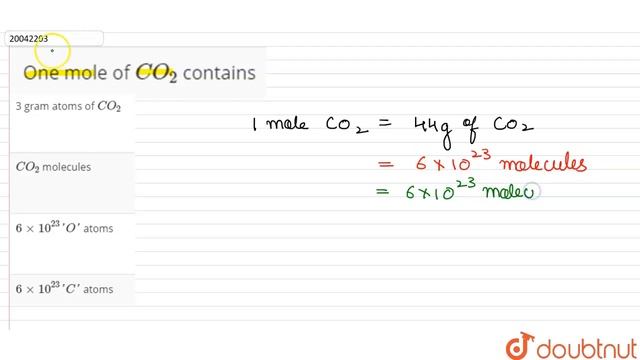 20042293
One mole of CO₂ contains
3 gram atoms of CO₂
CO₂ molecules
6 × 10²³ 'O' atoms
6 × 10²³ 'C' atoms
1 mole CO₂ = 44g of CO₂
= 6 × 10²³ molecules
= 6 × 10²³ molec
doubtnut